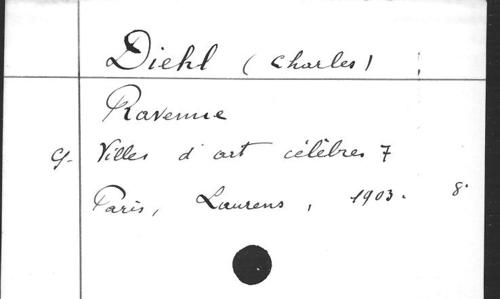 Diehl (Charles)
Ravenne
G. Villes d'art célèbres 7
Paris, Laurens, 1903. 8°